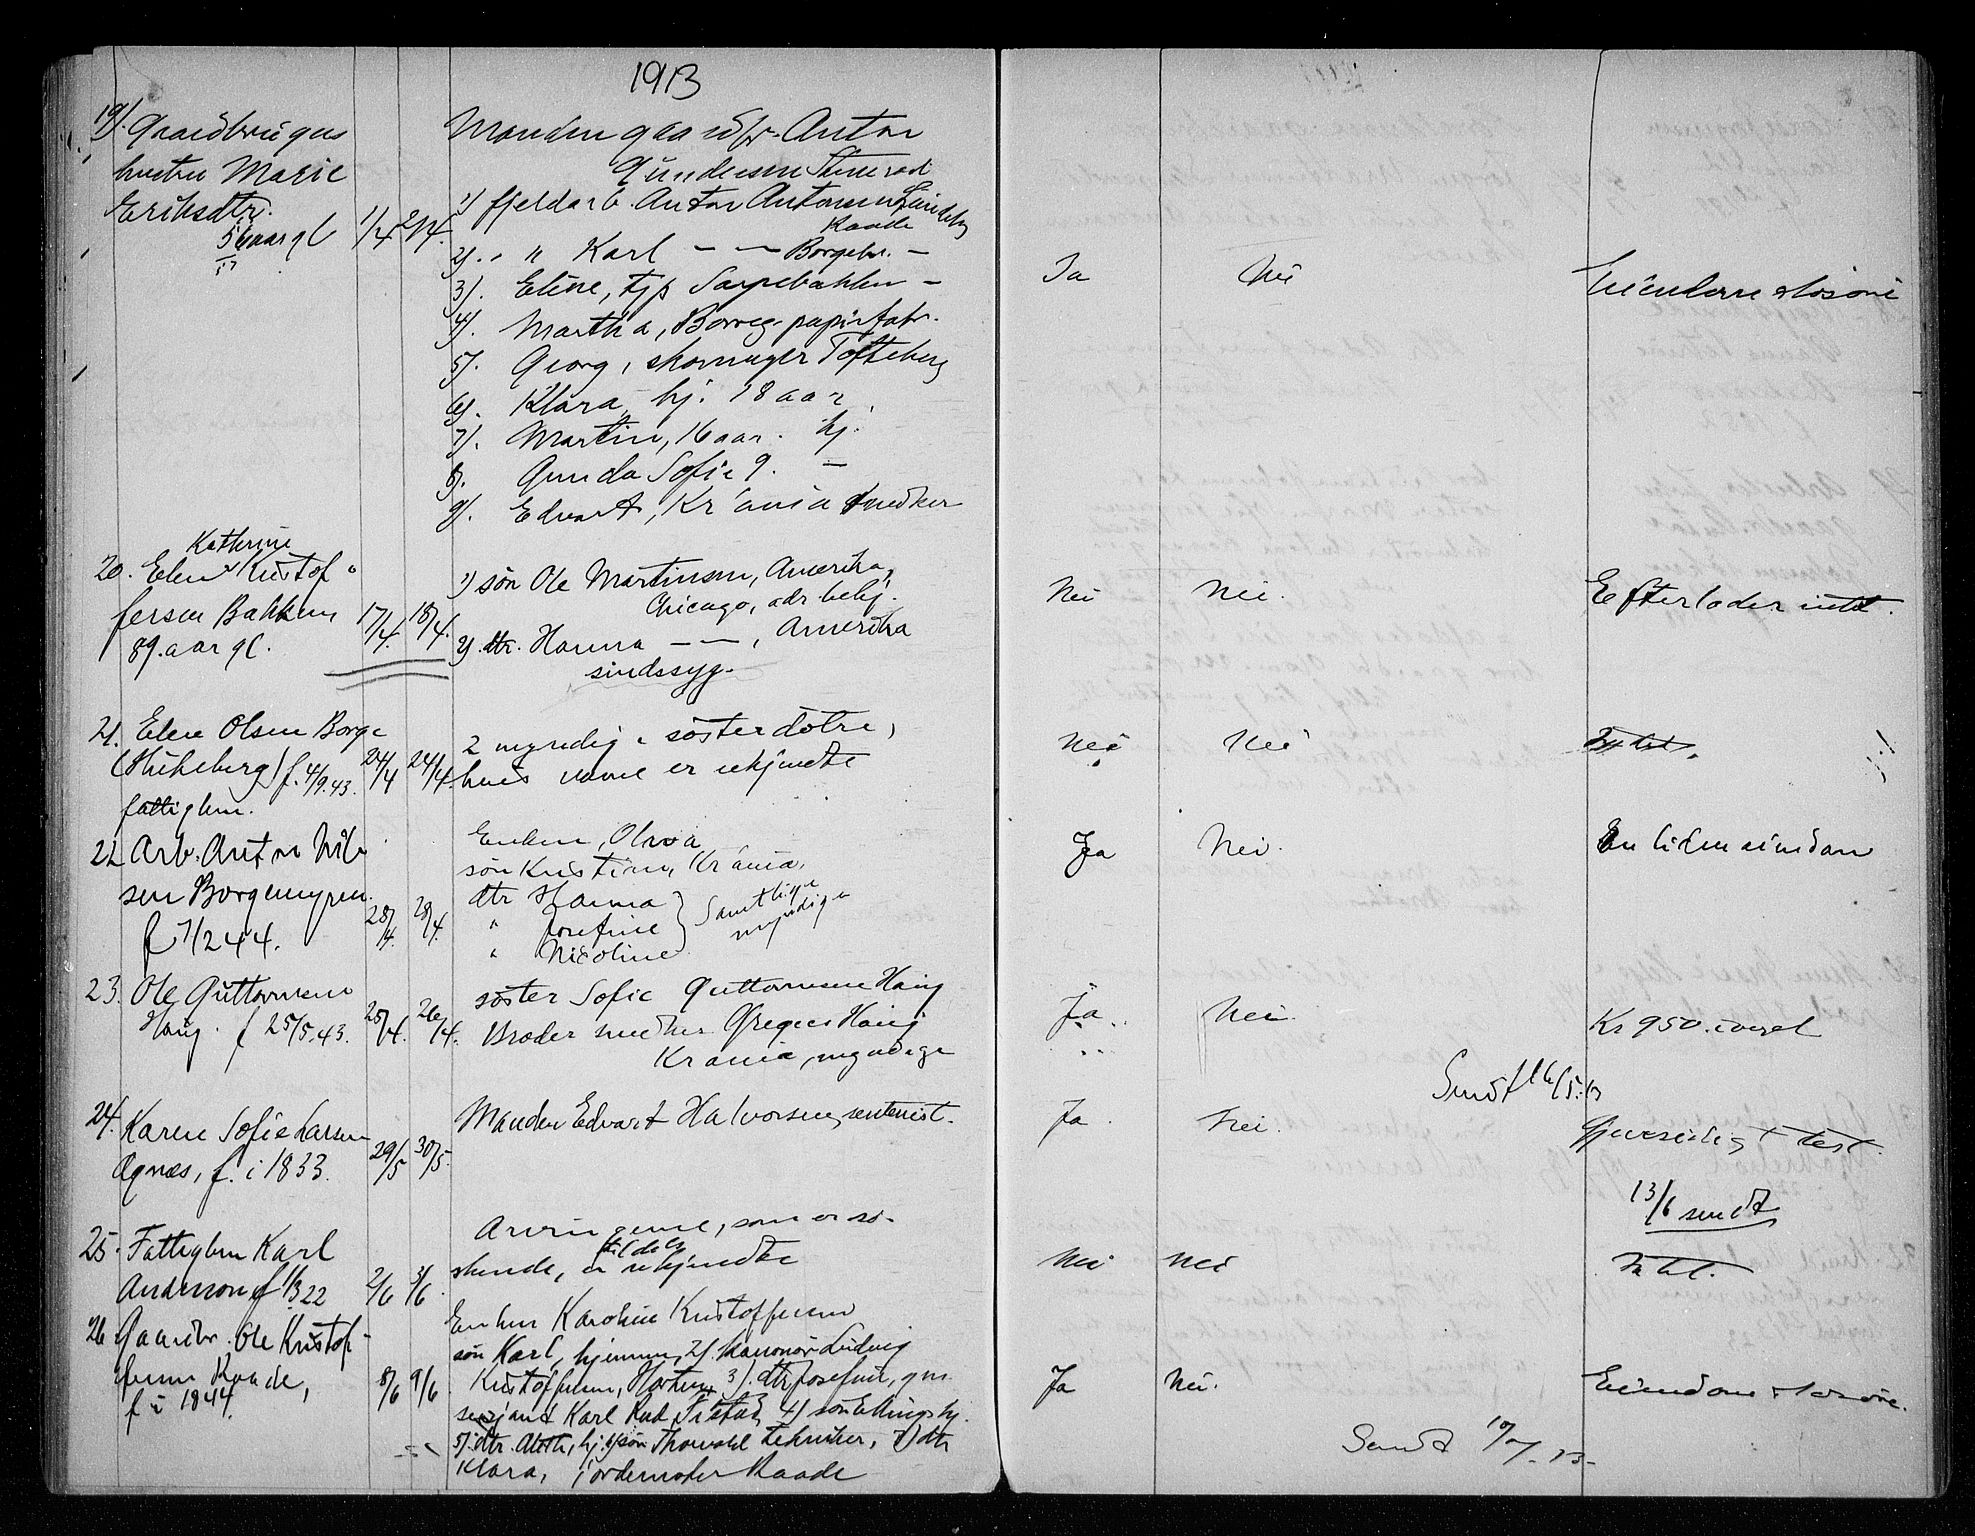 1913
19). Gaardbrugers
hustru Marie
Eriksdtr.
56 aar gl 1/4 2/4.
Manden gaardbr. Anton
Gundersen
1) fjeldarb. Anton Antonsen
Raade
2). „ " Karl — — Borgebr. —
3). Eline, tjp Sarpebakken —
4). Martha, Borreg. papirfabr.
5). Georg, skomager Tofteberg
6). Klara, hj. 18 aar
7). Martin, 16 aar. hj.
8). Gunda Sofie 9. —
9). Edvart, Kr'ania snedker
Ja Nei Eiendom & løsøre
Katherine
20. Elen Kristof-
fersen Bakken
89. aar gl. 17/4. 18/4.
1) søn Ole Martinsen, Amerika,
Chicago, adr. bekj.
2). dtr. Hanna — — , Amerika
sindssyg.
Nei Nei. Efterlader intet.
21. Elen Olsen Borge
f. 4/9.43.
fattiglem. 24/4 24/4.
2 myndige søsterdøtre,
hvis navne er ukjendte
Nei Nei Intet.
22. Arb. Anton Nil-
sen Borgemyren.
f 7/2 44. 28/4. 28/4.
Enken, Oliva
søn Kristian, Kr'ania,
dtr Hanna
" Josefine
" Nicoline
Samtlige
myndige
Ja Nei. En liden eiendom
23. Ole Guttormsen
Haug. f 25/5.43. 25/4. 26/4.
søster Sofie Guttormsen Haug
Broder snedker Gregers Haug
Krania, myndige
Ja Nei. Kr 950.
Sendt 16/5.13
24. Karen Sofie Larsen
Agnæs, f. i 1833. 29/5 30/5.
Manden Edvart Halvorsen,
Ja Nei. Gjensidigt test.
13/6 sendt
25. Fattiglem Karl
Anderson f 1/3 22 2/6 3/6.
Arvingerne, som er sø-
skende, er tildels ukjendte
Nei Nei Intet.
26 Gaardbr. Ole Kristof-
fersen Raade,
f i 1844. 8/6 9/6.
Enken Karoline Kristoffersen
søn Karl, hjemme, 2). kanoner Ludvig
Kristoffersen, Horten, 3). dtr Josefine, gm.
serjant Karl 4) søn Elling, hj.
5). dtr. hj. 6) søn Thorvald tekniker, 7) dtr
Klara, jordemoder Raade
Ja Nei. Eiendom & løsøre.
Sendt 10/7-13-